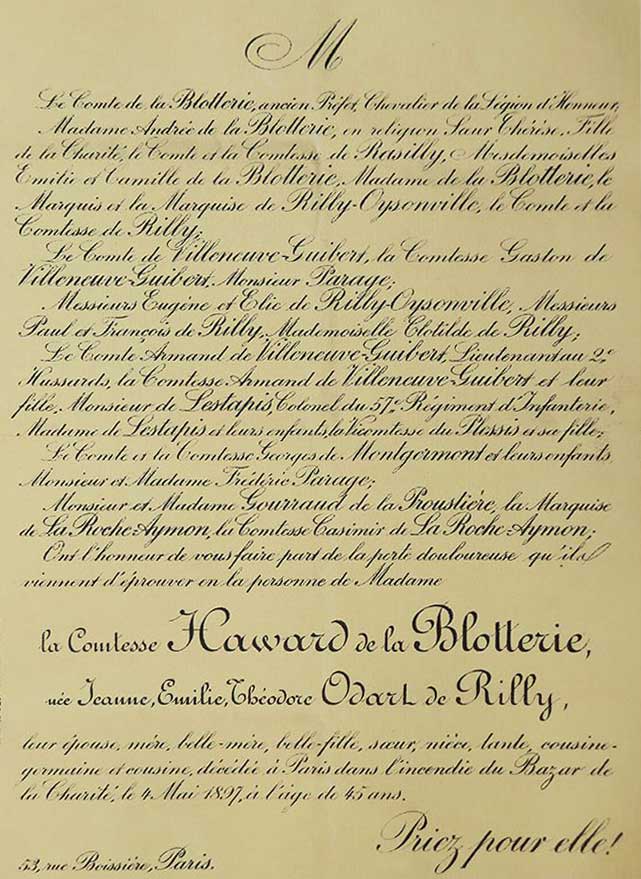 M
Le Comte de la Blotterie, ancien Préfet, Chevalier de la Légion d'Honneur,
Madame Andrée de la Blotterie, en religion Sœur Thérèse, Fille
de la Charité, le Comte et la Comtesse de Rasilly, Mesdemoiselles
Emilie et Camille de la Blotterie, Madame de la Blotterie, le
Marquis et la Marquise de Rilly-Oysonville, le Comte et la
Comtesse de Rilly;
Le Comte de Villeneuve-Guibert, la Comtesse Gaston de
Villeneuve-Guibert, Monsieur Parage;
Messieurs Eugène et Elie de Rilly-Oysonville, Messieurs
Paul et François de Rilly, Mademoiselle Clotilde de Rilly;
Le Comte Armand de Villeneuve-Guibert, Lieutenant au 2e
Hussards, la Comtesse Armand de Villeneuve-Guibert et leur
fille, Monsieur de Lestapis Colonel du 57e Régiment d'Infanterie,
Madame de Lestapis et leurs enfants, la Vicomtesse du Plessis et sa fille;
Le Comte et la Comtesse Georges de Montgermont et leurs enfants,
Monsieur et Madame Frédéric Parage;
Monsieur et Madame Gourraud de la Proustière, la Marquise
de La Roche-Aymon, la Comtesse Casimir de La Roche-Aymon;
Ont l'honneur de vous faire part de la perte douloureuse qu'ils
viennent d'éprouver en la personne de Madame
la Comtesse Haward de la Blotterie,
née Jeanne, Emilie, Théodore Odart de Rilly,
leur épouse, mère, belle-mère, belle-fille, sœur, nièce, tante, cousine-
germaine et cousine, décédée à Paris dans l'incendie du Bazar de
la Charité, le 4 Mai 1897, à l'âge de 45 ans.
Priez pour elle!
53, rue Boissière, Paris.